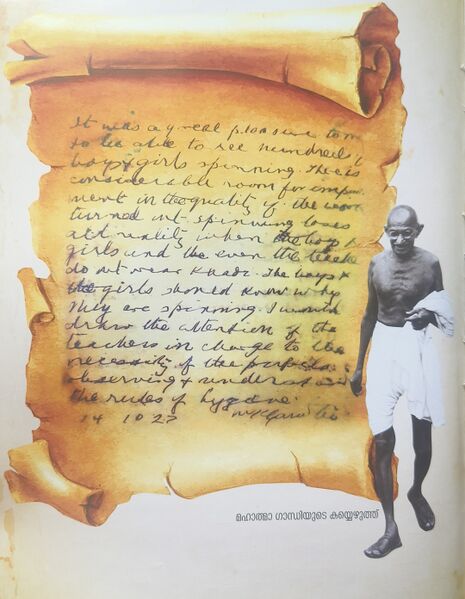 It was a great pleasure to me
to be able to see hundreds of
boys & girls spinning. There is
considerable room for improve
ment in the quality of the work
turned out. Spinning loses
all reality when the boys &
girls and the even the teachers
do not wear Khadi. The boys &
the girls should know why
they are spinning. I would
draw the attention of the
teachers in charge to the
necessity of the
observing & understanding
the rules of hygiene.
14 10 27 MKGandhi
മഹാത്മാ ഗാന്ധിയുടെ കയ്യെഴുത്ത്